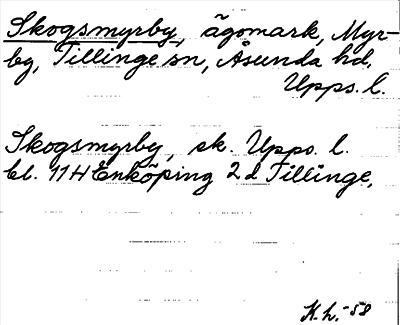 Skogsmyrby, ägomark, Myr-
by, Tillinge sn, Åsunda hd,
Upps. l.
Skogsmyrby, sk. Upps. l.
bl. 11H Enköping 2d Tillinge,
K.h.-58